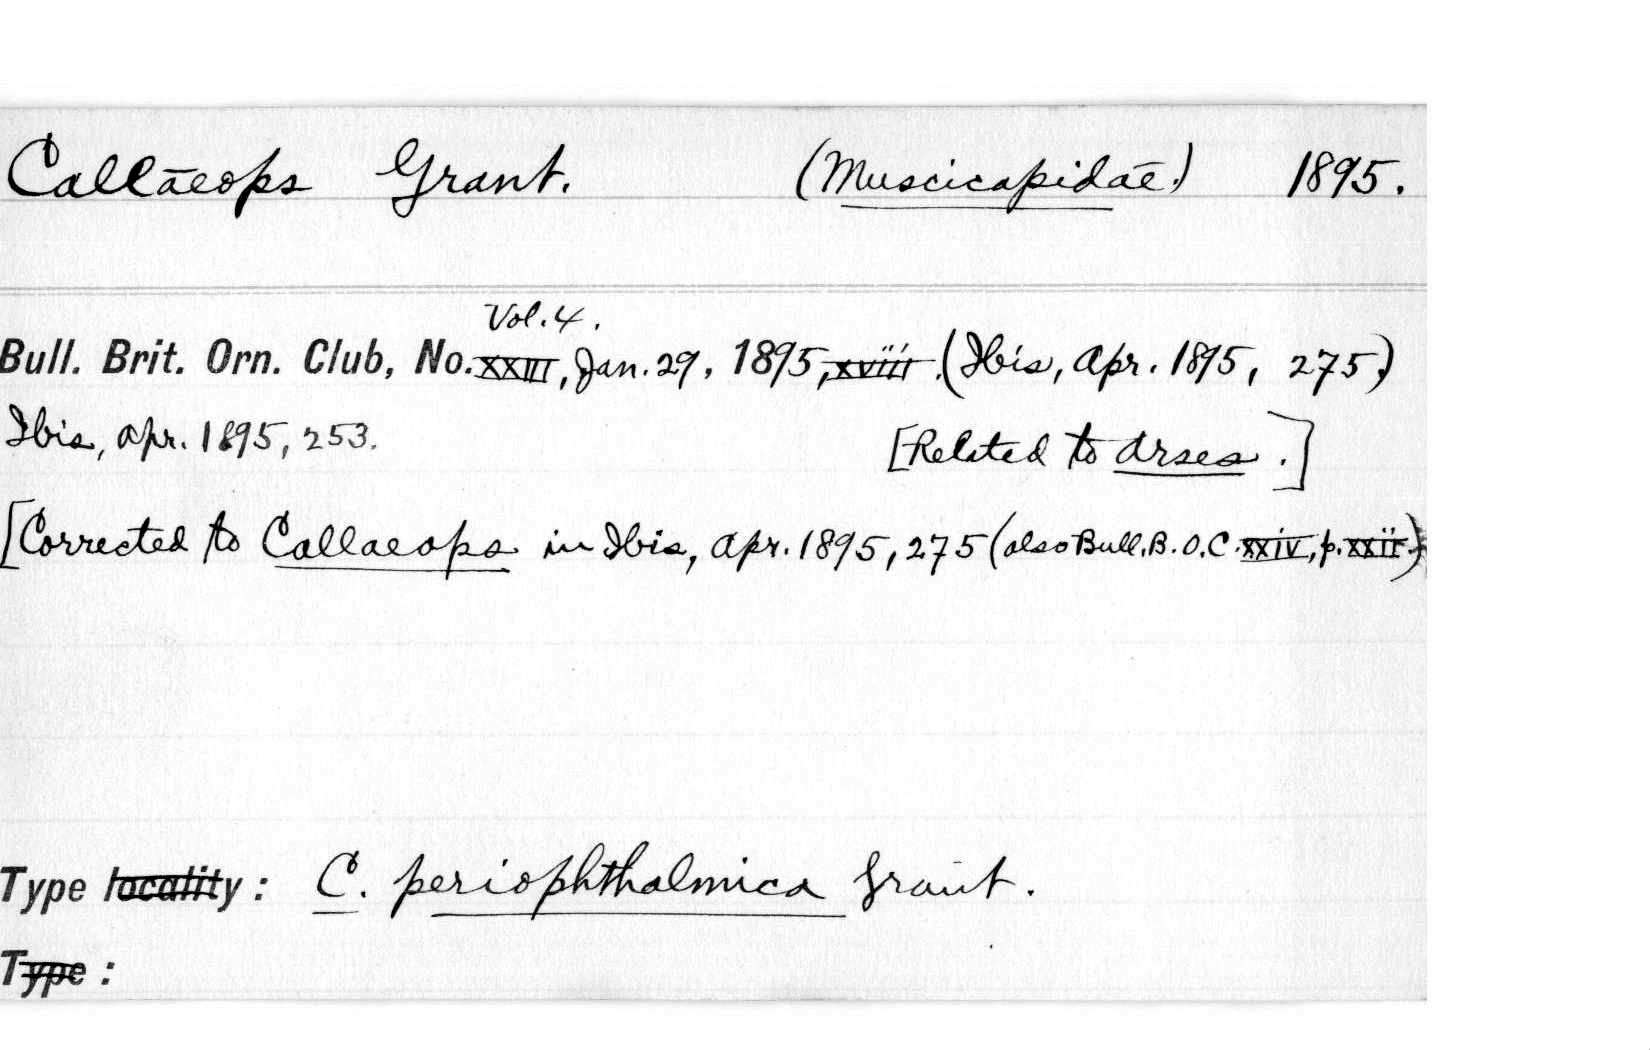 Callāeops Grant. (Muscicapidāē) 1895.
Vol. 4.
Bull. Brit. Orn. Club, No. XXIII, Jan. 29, 1895, xviii. (Ibis, Apr. 1895, 275)
Ibis, Apr. 1895, 253. [Related to Arses.]
[Corrected to Callaeops in Ibis, Apr. 1895, 275 (also Bull. B. O. C. xxiv, p. xxii)
Type locality: C. periophthalmica Grant.
Type: